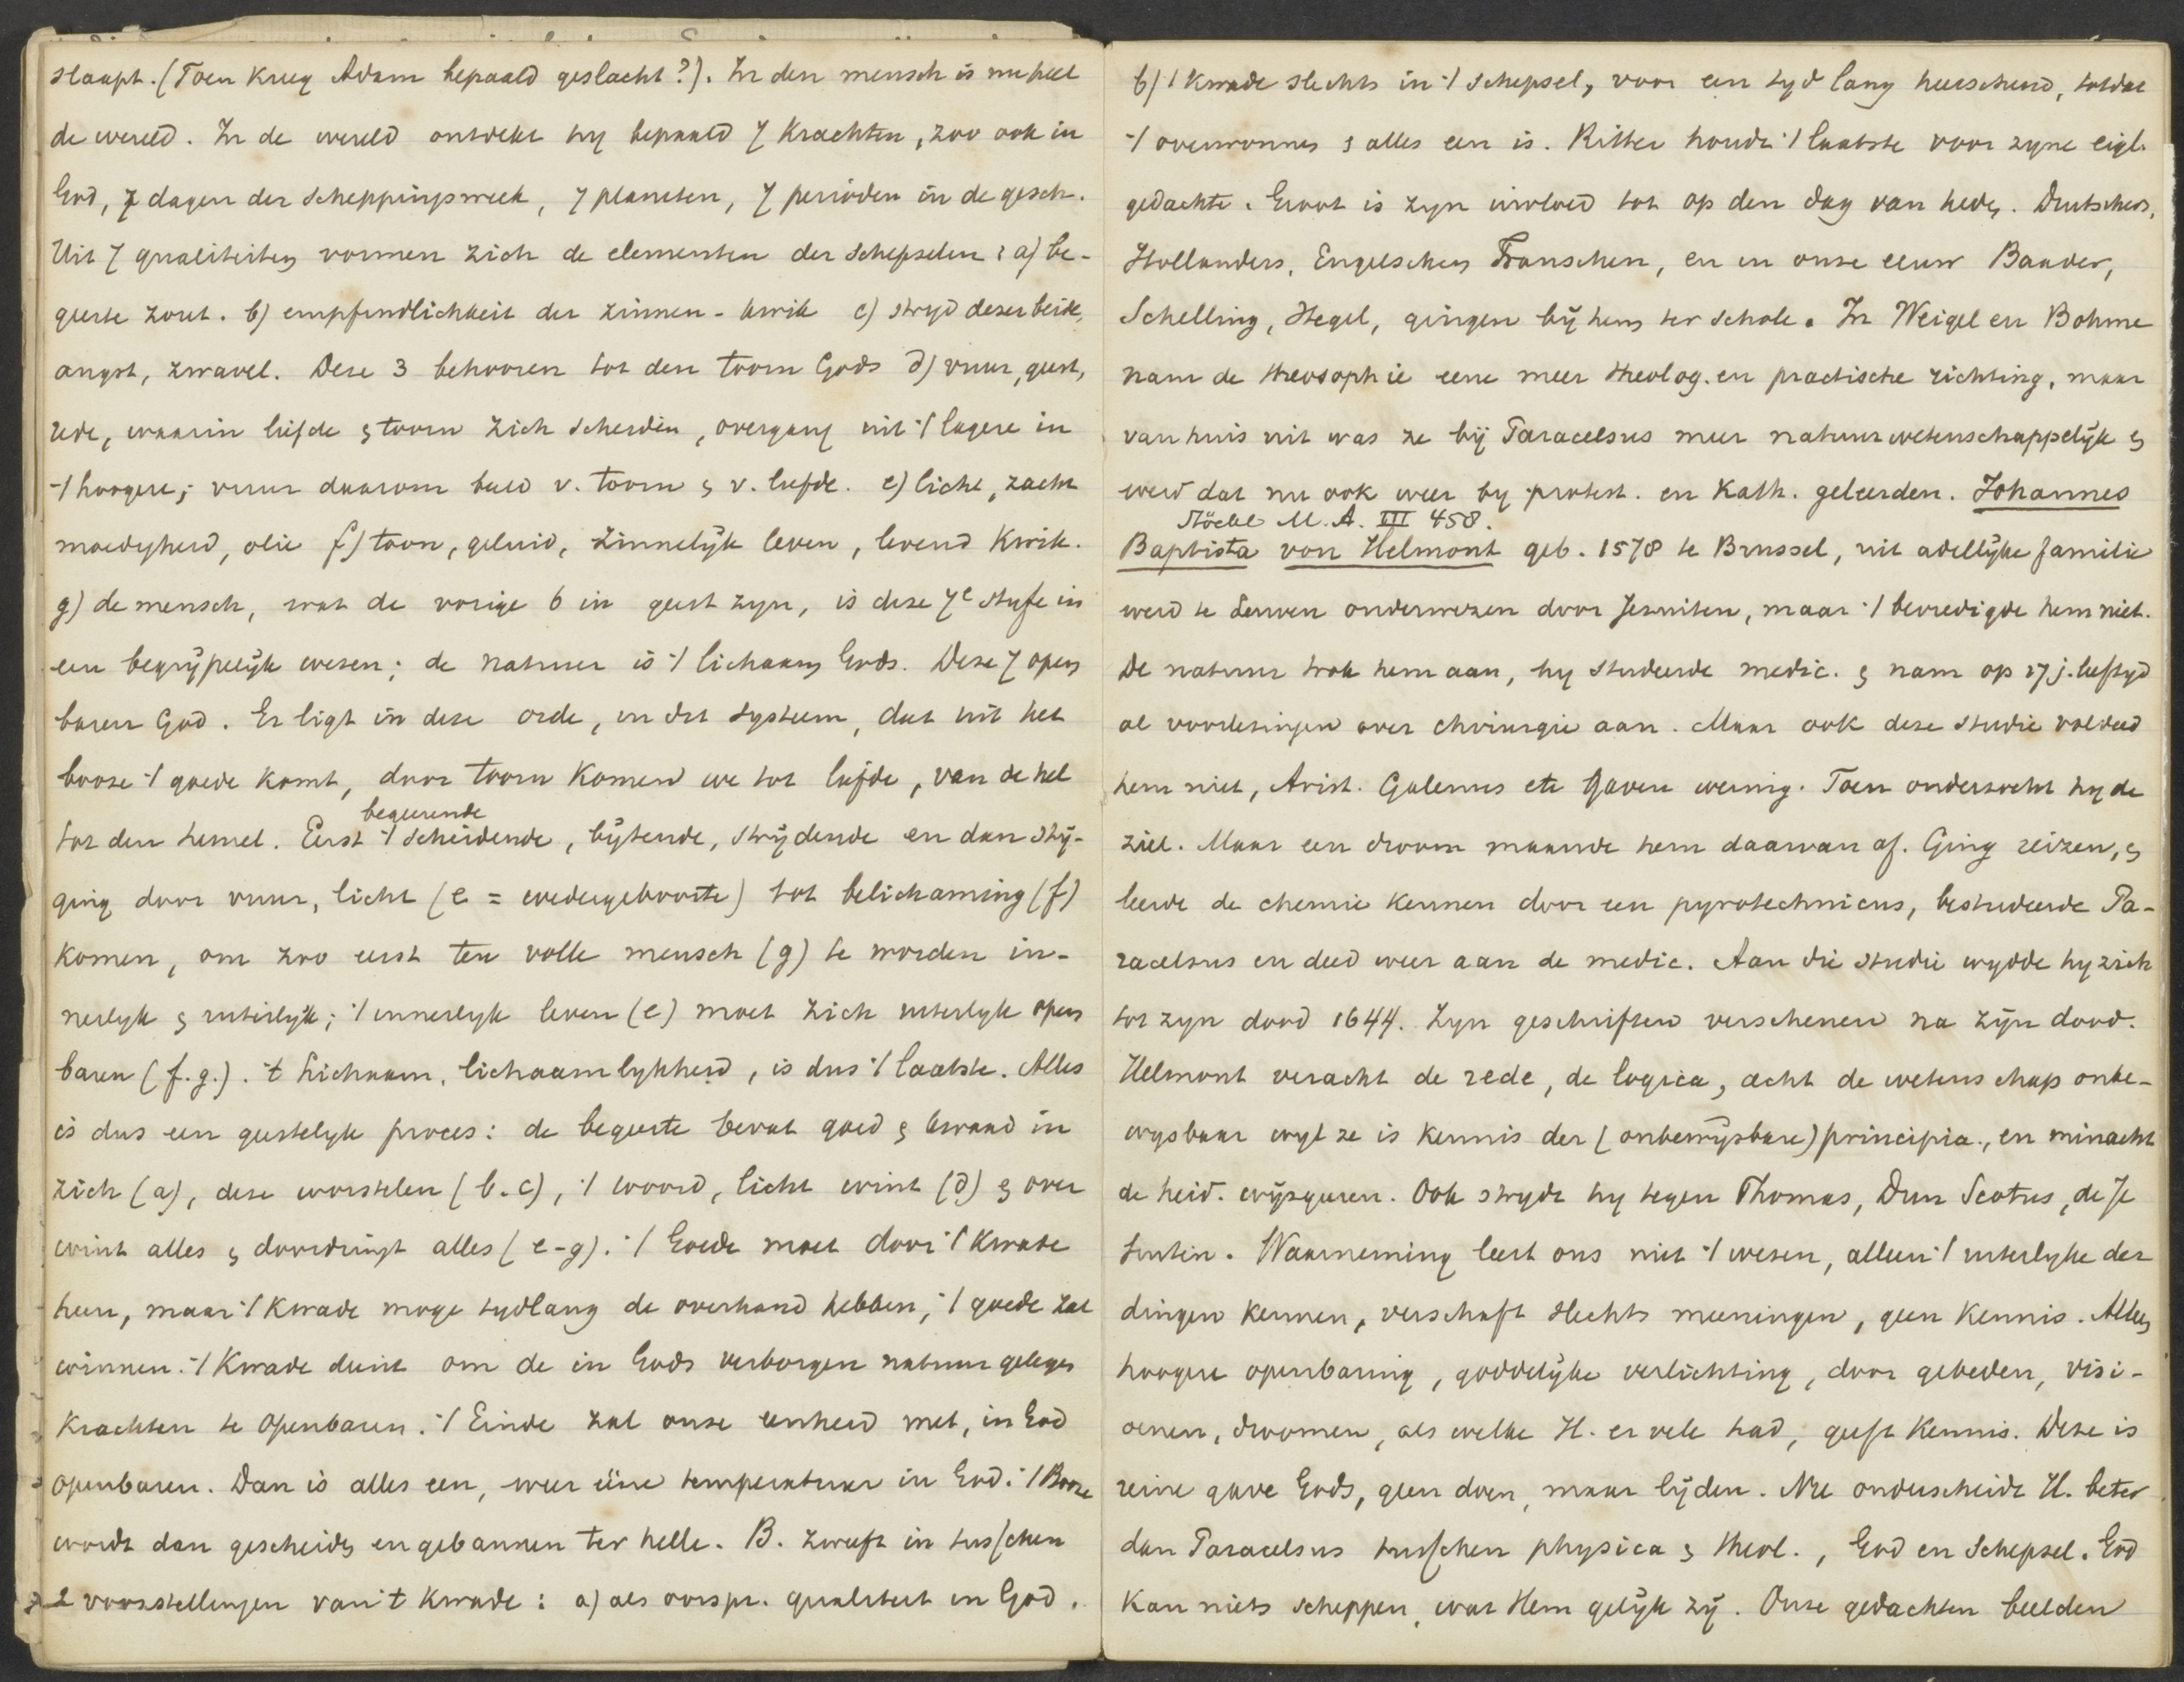 slaapt. (Toen kreeg Adam bepaald geslacht?). In den mensch is nu heel
de wereld. In de wereld ontdekt hy bepaald 7 krachten, zoo ook in
God, 7 dagen der scheppingsweek, 7 planeten, 7 perioden in de gesch.
Uit 7 qualiteiten vormen zich de elementen der schepselen: a) be-
geerte zout. b) empfindlichkeit der zinnen - kwik c) stryd dezer beide,
angst, zwavel. Deze 3 behooren tot den toorn Gods d) vuur, geest,
rede, waarin liefde & toorn zich scheiden, overgang uit 't lagere in
't hoogere; vuur daarom beeld v. toorn & v. liefde. e) licht, zacht
moedigheid, olie f) toon, geluid, zinnelijk leven, levend kwik.
g) de mensch, wat de vorige 6 in geest zyn, is deze 7e stufe in
een begrijpelijk wezen; de natuur is 't lichaam Gods. Deze 7 open
baren God. Er ligt in deze orde, in dit systeem, dat uit het
booze 't goede komt, door toorn komen we tot liefde, van de hel
begeerende
tot den hemel. Eerst 't scheidende, bijtende, strijdende en dan stij-
ging door vuur, licht (e = wedergeboorte) tot belichaming (f)
komen, om zoo eerst ten volle mensch (g) te worden in-
nerlyk & uiterlijk; 't innerlyk leven (e) moet zich uiterlyk open
baren (f.g.). 't Lichaam, lichaamlykheid, is dus 't laatste. Alles
is dus een geestelyk proces: de begeerte bevat goed & kwaad in
zich (a), deze worstelen (b.c), 't woord, licht wint (d) & over
wint alles & doordringt alles (e-g). 't Goede moet door 't kwade
heen, maar 't kwade moge tydlang de overhand hebben, 't goede zal
winnen. 't Kwade dient om de in Gods verborgen natuur gelegen
krachten te openbaren. 't Einde zal onze eenheid met, in God
openbaren. Dan is alles een, weer eene temperatuur in God. 't Booze
wordt dan gescheiden en gebannen ter helle. B. zweeft in tusschen
2 voorstellingen van 't kwade: a) als oorspr. qualiteit in God.
b) 't kwade slechts in 't schepsel, voor een tyd lang heerschend, totdat
't overwonnen & alles een is. Ritter houdt 't laatste voor zyne eigl.
gedachte. Groot is zyn invloed tot op den dag van heden. Duitschers,
Hollanders, Engelschen Franschen, en in onze eeuw Baader,
Schelling, Hegel, gingen bij hem ter schole. In Weigel en Bohme
nam de theosophie eene meer theolog. en practische richting, maar
van huis uit was ze bij Paracelsus meer natuurwetenschappelijk &
werd dat nu ook weer by protest. en Kath. geleerden. Johannes
Stöckl M.A. III 458.
Baptista von Helmont geb. 1578 te Brussel, uit adellijke familie
werd te Leuven onderwezen door Jezuiten, maar 't bevredigde hem niet.
De natuur trok hem aan, hy studeerde medic. & nam op 17 j. leeftyd
al voorlezingen over chirurgie aan. Maar ook deze studie voldeed
hem niet, Arist. Galenus etc gaven weinig. Toen onderzocht hy de
ziel. Maar een droom maande hem daarvan af. Ging reizen, &
leerde de chemie kennen door een pyrotechnicus, bestudeerde Pa-
racelsus en deed weer aan de medic. Aan die studie wydde hy zich
tot zyn dood 1644. Zyn geschriften verschenen na zijn dood.
Helmont veracht de rede, de logica, acht de wetenschap onbe-
wysbaar wyl ze is kennis der (onbewijsbare) principia., en minacht
de heid. wijsgeeren. Ook strydt hy tegen Thomas, Dun Scotus, de Je
suiten. Waarneming leert ons niet 't wezen, alleen 't uiterlyke der
dingen kennen, verschaft slechts meeningen, geen kennis. Alleen
hoogere openbaring, goddelijke verlichting, door gebeden, visi-
oenen, droomen, als welke H. er vele had, geeft kennis. Deze is
reine gave Gods, geen doen, maar lijden. Nu onderscheidt H. beter
dan Paracelsus tusschen physica & theol., God en Schepsel. God
kan niets scheppen, wat Hem gelijk zij. Onze gedachten beelden